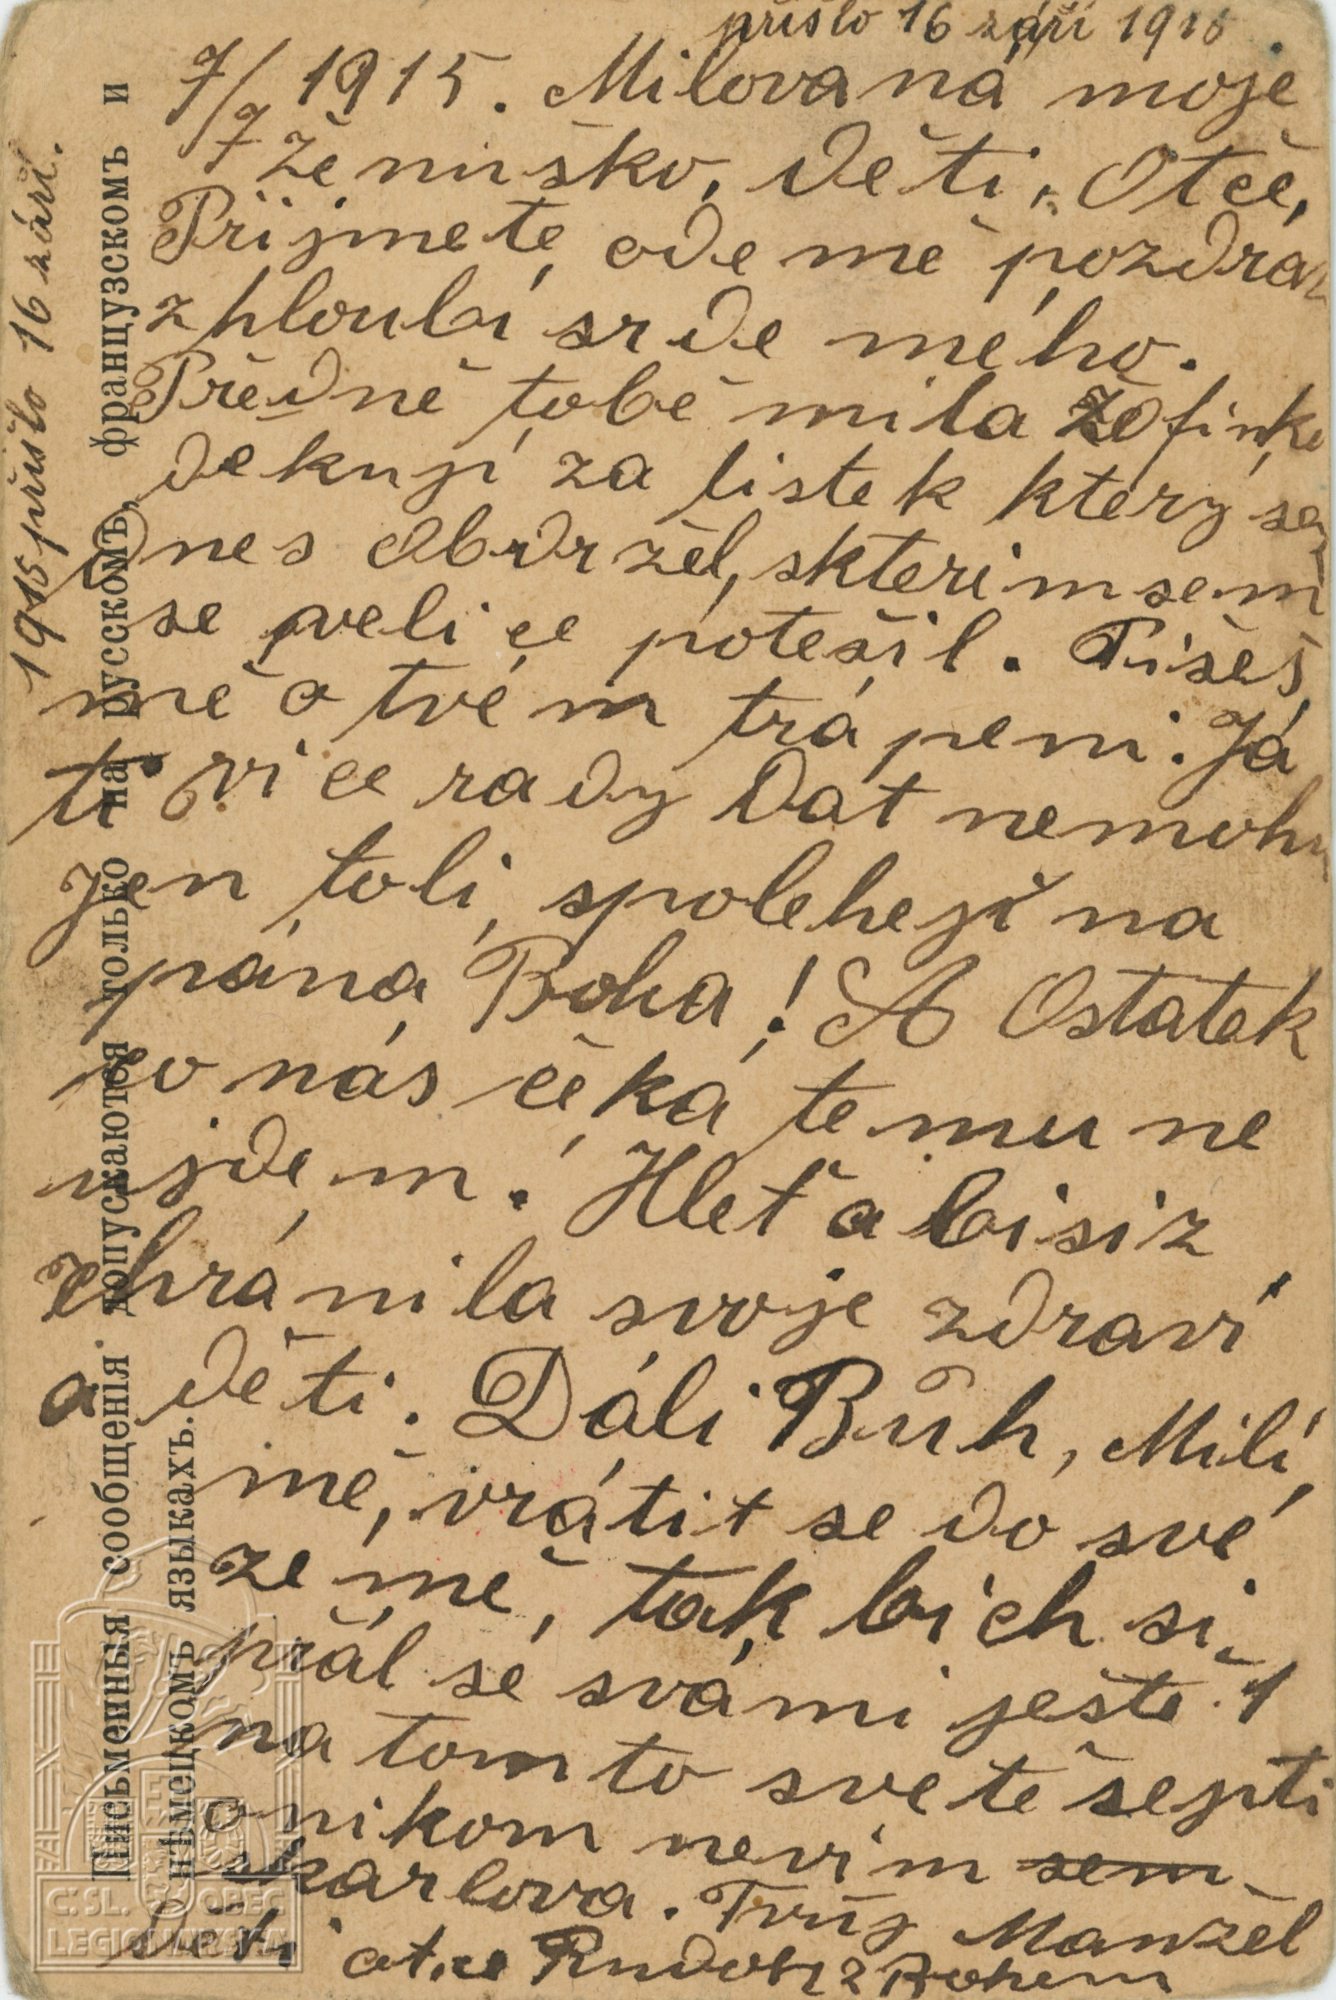 přišlo 16 září 1915.
7/7 1915. Milovaná moje
ženuško, děti, Otče,
Přijmete ode mě pozdrav
z hloubi srde mého.
Předně tobě mila Žofinko
dekuji za listek ktery sem
dnes obdržel, skterim sem
se velice potešil. Pišeš
mě o tvém trápeni. Já
ti vice rady dat nemohu
jen toli, spoleheji na
pána Boha! A Ostatek
co nás čeká temu ne
ujdem. Hleť a bi si z
chránila svoje zdravi
a děti. Dáli Bůh, Milí,
mě, vrátit se do své
země, tak bich si
přál se svámi ještě
na tomto svete sejiti
o nikom nevim sem
skarlova. Tvůj Manžel
děti otce Rudolf z Bohem
1915 přišlo 16 září.
Письменныя сообщенія допускаются только на русскомъ, французскомъ и
нѣмецкомъ языкахъ.
Č.SL. OBEC
LEGIONÁŘSKÁ